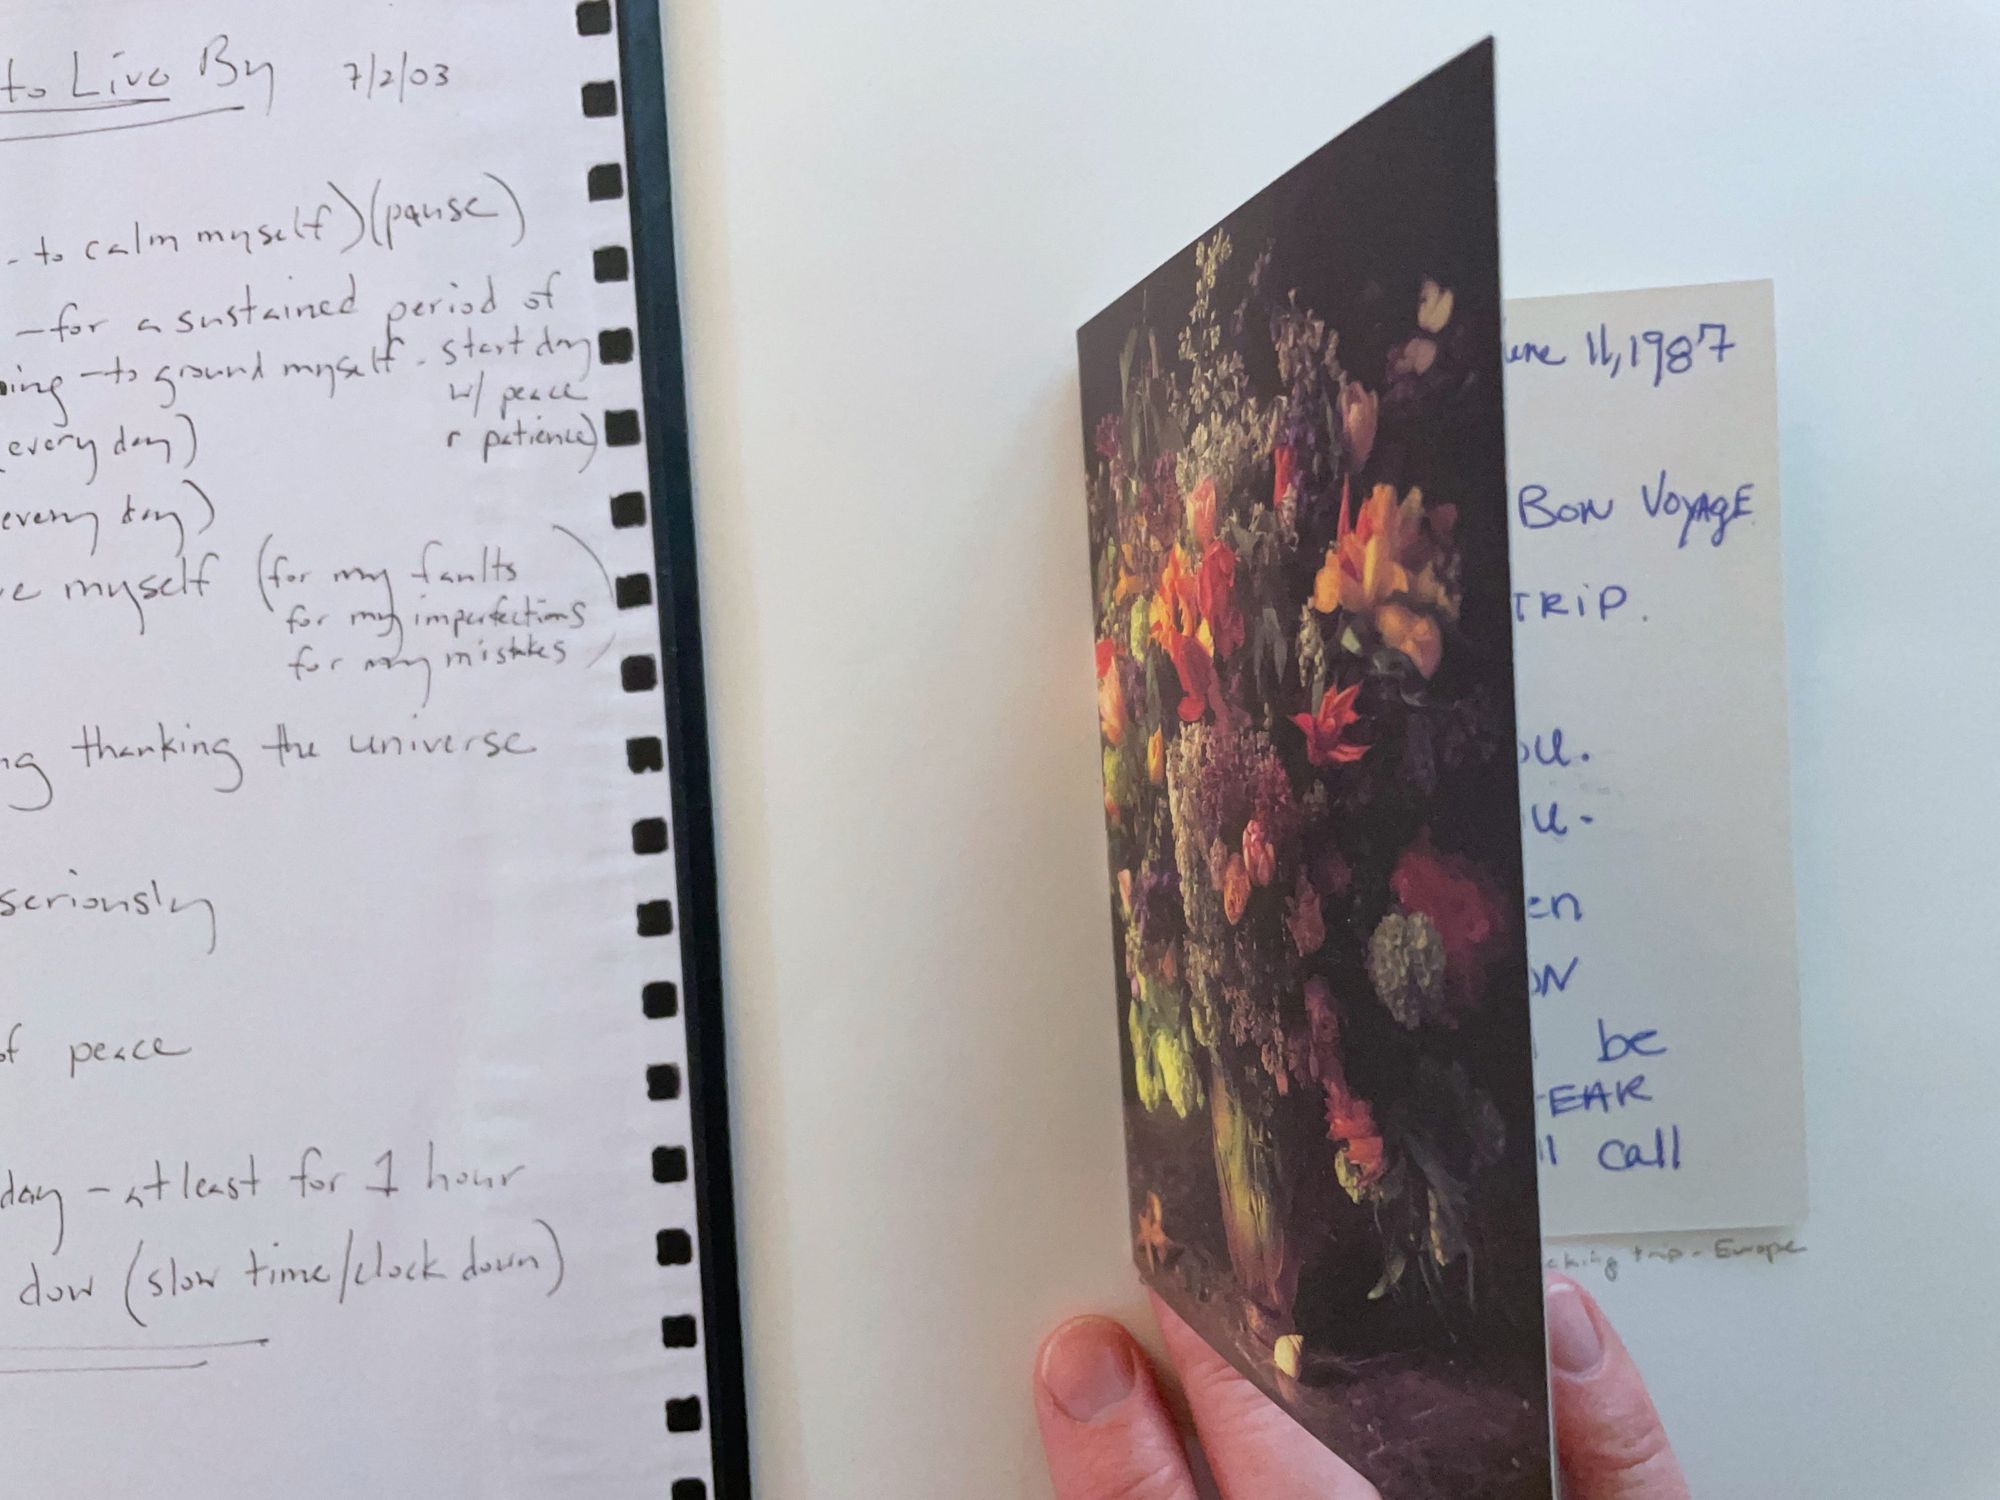 to Live By 7/2/03
- to calm myself) (pause)
- for a sustained period of
- to ground myself - start day
w/ peace
patience)
(every day)
every day)
myself (for my faults
for my imperfections
for my mistakes
thanking the universe
seriously
of peace
day - at least for 1 hour
dow (slow time/clock down)
11, 1987
BON VOYAGE
TRIP.
be
call
trip - Europe